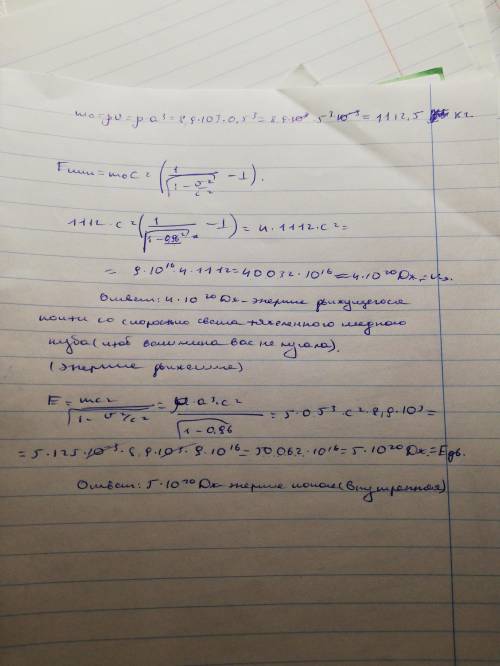 m₀=ρV=ρa³=8,9·10³·0,5³=8,9·10³·5³·10⁻³=1112,5 кг.
Eкин=m₀c²(1/√(1-v²/c²) -1).
1112·c²(1/√(1-0,96) -1)=4·1112·c²=
=9·10¹⁶·4·1112=40032·10¹⁶=4·10²⁰Дж
Ответ: 4·10²⁰Дж-энергия движущегося
почти со скоростью света медного
куба (чтоб величина вас не пугала).
(энергия движения)
E=mc²/√(1-v²/c²)=ρ·a³·c²/√(1-0,96)=5·0,5³·c²·8,9·10³=
=5·125·10⁻³·8,9·10³·9·10¹⁶=50062·10¹⁶=5·10²⁰Дж=Eдв.
Ответ: 5·10²⁰Дж-энергия (внутренняя)